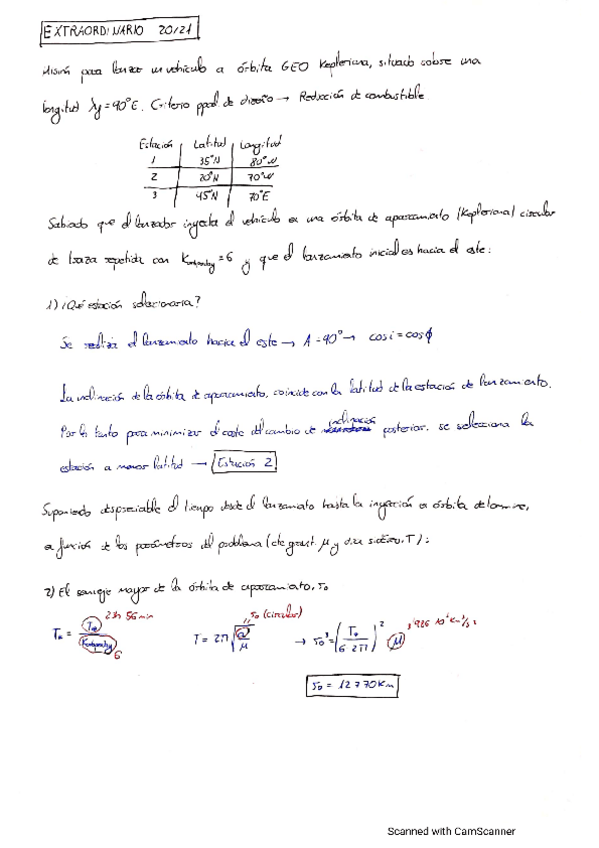 EXTRAORDINARIO 20/21
Misión para lanzar un vehículo a órbita GEO Kepleriana, situado sobre una
longitud λy = 90°E. Criterio ppal de diseño → Reducción de combustible.
Estación | Latitud | Longitud
1 | 35°N | 80°W
2 | 20°N | 70°W
3 | 45°N | 70°E
Sabiendo que el lanzador inyecta el vehículo en una órbita de aparcamiento (Kepleriana) circular
de traza repetida con K =6 y que el lanzamiento inicial es hacia el este:
1) ¿Qué estación seleccionaría?
Se realiza el lanzamiento hacia el este → A = 90° → cos i = cos ϕ
La inclinación de la órbita de aparcamiento, coincide con la latitud de la estación de lanzamiento.
Por lo tanto para minimizar el coste del cambio de inclinación posterior, se selecciona la
estación a menor latitud → Estación 2
Suponiendo despreciable el tiempo desde el lanzamiento hasta la inyección en órbita determine,
en función de los parámetros del problema (cte gravit. μ y día sidéreo, T):
2) El semieje mayor de la órbita de aparcamiento, r0
23h 56 min
6
T = 2π √(a/μ)
r0 (circular)
→ r0³ = (T0 / 6 2π)² μ
r0 = 12770 Km
Scanned with CamScanner